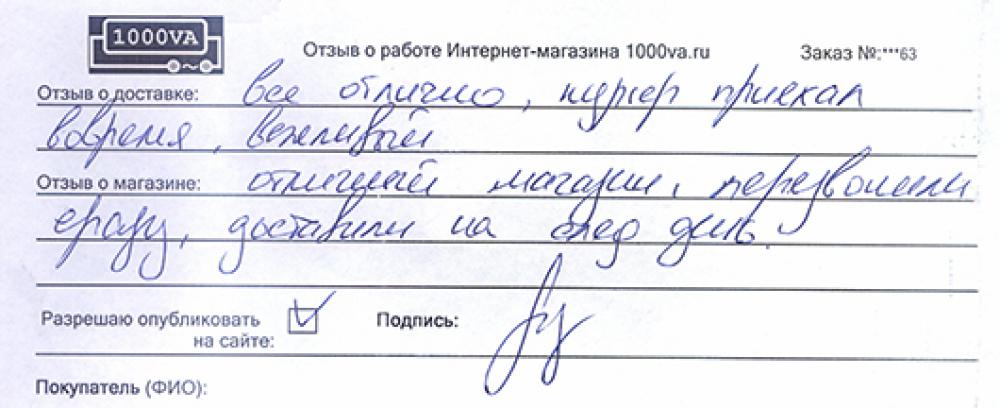 1000VA
Отзыв о работе Интернет-магазина 1000va.ru
Заказ №:***63
Отзыв о доставке: все отлично, курьер приехал
вовремя, вежливый
Отзыв о магазине: отличный магазин, перезвонили
сразу, доставили на след день.
Разрешаю опубликовать
на сайте:
Подпись:
Покупатель (ФИО):